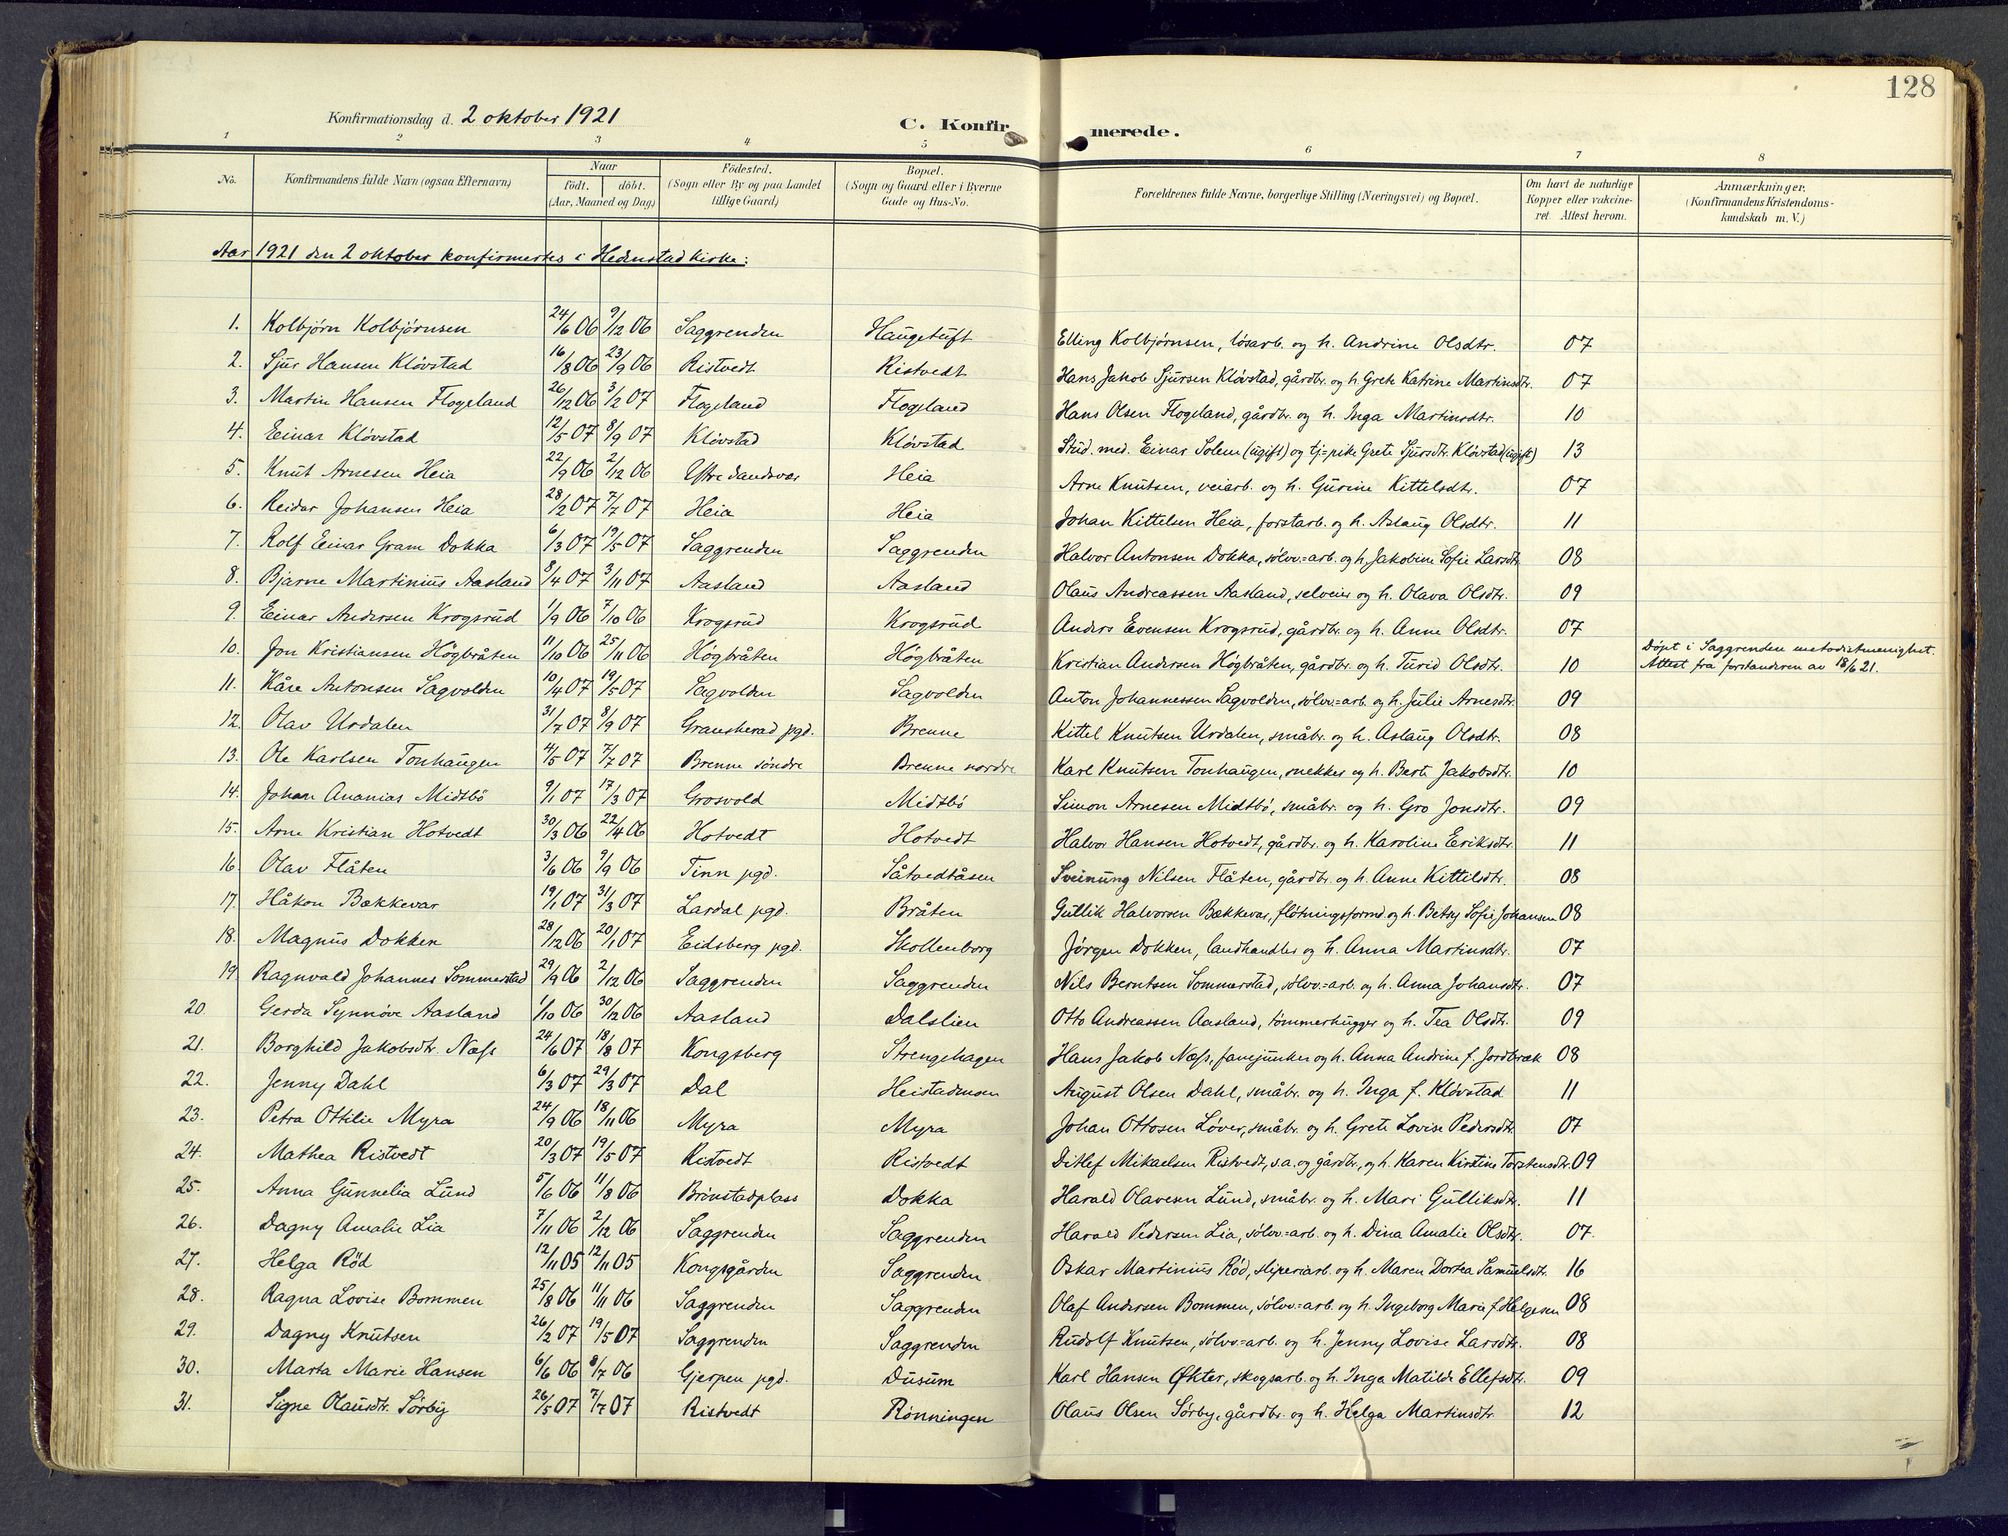 128
Konfirmationsdag d. 2 oktober 1921
C. Konfirmerede.
1 2 3 4 5 6 7 8
No. | Konfirmandens fulde Navn (ogsaa Efternavn) | Naar födt. döbt. (Aar, Maaned og Dag) | Födested. (Sogn eller By og paa Landet tillige Gaard) | Bopæl. (Sogn og Gaard eller i Byerne Gade og Hus-No. | Forældrenes fulde Navne, borgerlige Stilling (Næringsvei) og Bopæl. | Om havt de naturlige Kopper eller vakcineret Attest herom. | Anmærkninger. (Konfirmandens Kristendomskundskab m. V.)
Aar 1921 den 2 oktober konfirmertes i Hedenstad kirke:
1. Kolbjørn Kolbjørnsen 24/6 06 9/12 06 Saggrenden Haugetuft Elling Kolbjørnsen, løsarb. og h. Andrine Olsdtr. 07
2. Sjur Hansen Kløvstad 16/8 06 23/9 06 Ristvedt Ristvedt Hans Jakob Sjursen Kløvstad, gårdbr. og h. Grete Katrine Martinsdtr. 07
3. Martin Hansen Flogeland 26/12 06 3/2 07 Flogeland Flogeland Hans Olsen Flogeland, gårdbr. og h. Inga Martinsdtr. 10
4. Einar Kløvstad 12/5 07 8/9 07 Kløvstad Kløvstad Stud. med. Einar Solem (ugift) og tj=pike Grete Sjursdtr. Kløvstad (ugift) 13
5. Knut Arnesen Heia 22/9 06 2/12 06 Øfre Sandsvær Heia Arne Knutsen, veiarb. og h. Gurine Kittelsdtr. 07
6. Reidar Johansen Heia 28/2 07 7/7 07 Heia Heia Johan Kittelsen Heia, forstarb. og h. Aslaug Olsdtr. 11
7. Rolf Einar Gram Dokka 6/3 07 19/5 07 Saggrenden Saggrenden Halvor Antonsen Dokka, sølvv=arb. og h. Jakobine Sofie Larsdtr. 08
8. Bjarne Martinius Aasland 8/4 07 3/11 07 Aasland Aasland Olaus Andreassen Aasland, selveier og h. Olava Olsdtr. 09
9. Einar Andersen Krogsrud 1/9 06 7/10 06 Krogsrud Krogsrud Anders Evensen Krogsrud, gårdbr. og h. Anne Olsdtr. 07
10. Jon Kristiansen Högbråten 11/10 06 25/11 06 Högbråten Högbråten Kristian Andersen Högbråten, gårdbr. og h. Turid Olsdtr. 10 Døpt i Saggrenden metodistmenighet. Attest fra forstanderen av 18/6 21.
11. Kåre Antonsen Sagvolden 10/4 07 19/5 07 Sagvolden Sagvolden Anton Johannessen Sagvolden, sølvv=arb. og h. Julie Arnesdtr. 09
12. Olav Urdalen 31/7 07 8/9 07 Gransherad pgd. Brenne Kittel Knutsen Urdalen, småbr. og h. Aslaug Olsdtr. 08
13. Ole Karlsen Tonhaugen 4/5 07 7/7 07 Brenne søndre Brenne nordre Karl Knutsen Tonhaugen, snekker og h. Berte Jakobsdtr. 10
14. Johan Ananias Midtbö 9/1 07 17/3 07 Grosvold Midtbö Simon Arnesen Midtbö, småbr. og h. Gro Jonsdtr. 09
15. Arne Kristian Hotvedt 30/3 06 22/4 06 Hotvedt Hotvedt Halvor Hansen Hotvedt, gårdbr. og h. Karoline Eriksdtr. 11
16. Olav Flåten 3/6 06 9/9 06 Tinn pgd. Såtvedtåsen Sveinung Nilsen Flåten, gårdbr. og h. Anne Kittilsdtr. 08
17. Håkon Bækkevar 19/1 07 31/3 07 Lardal pgd. Bråten Gullik Halvorsen Bækkevar, fløtningsformd og h. Betsy Sofie Johansen 08
18. Magnus Dokken 28/12 06 20/1 07 Eidsberg pgd. Skollenborg Jørgen Dokken, landhandler og h. Anna Martinsdtr. 07
19 Ragnvald Johannes Sommerstad 29/9 06 2/12 06 Saggrenden Saggrenden Nils Berntsen Sommerstad, sølvv.=arb. og h. Anna Johansdtr. 07
20. Gerda Synnöve Aasland 1/10 06 30/12 06 Aasland Dalslien Otto Andreassen Aasland, tømmerhugger og h. Tea Olsdtr. 09
21. Borghild Jakobsdtr. Næss 24/6 07 18/8 07 Kongsberg Strengehagen Hans Jakob Næss, fanejunker og h. Anna Andrine f. Jordbræk 08
22. Jenny Dahl 6/3 07 29/3 07 Dal Heistadmoen August Olsen Dahl, småbr. og h. Inga f. Kløvstad 11
23. Petra Ottilie Myra 24/9 06 18/11 06 Myra Myra Johan Ottosen Løver, småbr. og h. Grete Lovise Pedersdtr. 07
24. Mathea Ristvedt 20/3 07 19/5 07 Ristvedt Ristvedt Ditlef Mikaelsen Ristvedt, s.a. og gårdbr. og h. Karen Kirstine Torstensdtr. 09
25. Anna Gunnelia Lund 5/6 06 11/8 06 Brönstadplass Dokka Harald Olavesen Lund, småbr. og h. Mari Gulliksdtr. 11
26. Dagny Amalie Lia 7/11 06 2/12 06 Saggrenden Saggrenden Harald Pedersen Lia, sølvv=arb. og h. Dina Amalie Olsdtr. 07.
27. Helga Röd 12/11 05 12/11 05 Kongsgården Saggrenden Oskar Martinius Röd, sliperiarb. og h. Maren Dortea Samuelsdtr. 16
28. Ragna Lovise Bommen 25/8 06 11/11 06 Saggrenden Saggrenden Olaf Andersen Bommen, sølvv=arb. og h. Ingeborg Marie f. Helgesen 08
29. Dagny Knutsen 26/2 07 19/5 07 Saggrenden Saggrenden Rudolf Knutsen, sølvv=arb. og h. Jenny Lovise Larsdtr. 08
30. Marta Marie Hansen 6/6 06 8/7 06 Gjerpen pgd. Dusum Karl Hansen Økter, skogsarb. og h. Inga Matilde Ellefsdtr. 09
31. Signe Olausdtr. Sörby 26/5 07 7/7 07 Ristvedt Rönningen Olaus Olsen Sörby, gårdbr. og h. Helga Martinsdtr. 12